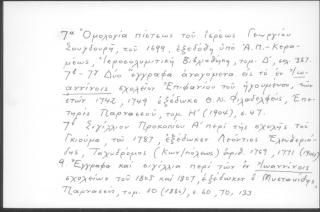 7α Ὁμολογία πίστεως τοῦ ἱερέως Γεωργίου
Σουγδουρῆ, τοῦ 1699, ἐξεδόθη ὑπὸ Ἀ.Π.-Κερα-
μέως, Ἱεροσολυμιτικὴ Βιβλιοθήκη, τομ. Δ',
Δύο ἔγγραφα ἀναγόμενα εἰς τὸ ἐν Ἰω-
αννίνοις σχολεῖον Ἐπιφανίου τοῦ ἡγουμένου, τῶν
ἐτῶν 1742, 1749 ἐξέδωκε Θ.Ν. Φιλαδελφεύς, Ἐπε-
τηρὶς Παρνασσοῦ, τομ. Η' (1904), σ. 47.
Σιγίλλιον Προκοπίου Α' περὶ τῆς σχολῆς τοῦ
Γκιούμα, τοῦ 1787, ἐξέδωκεν Λεόντιος
Ταχυδρόμος (Κων/πόλεως) ἀριθ. 1769, 1771
9. Ἔγγραφα καὶ σιγίλλια περὶ τῶν ἐν Ἰωαννίνοις
σχολείων τοῦ 1805 καὶ 1807, ἐξέδωκεν ὁ Μυστακίδης,
Παρνασσοῦ, τομ. 10 σ. 60, 70, 133